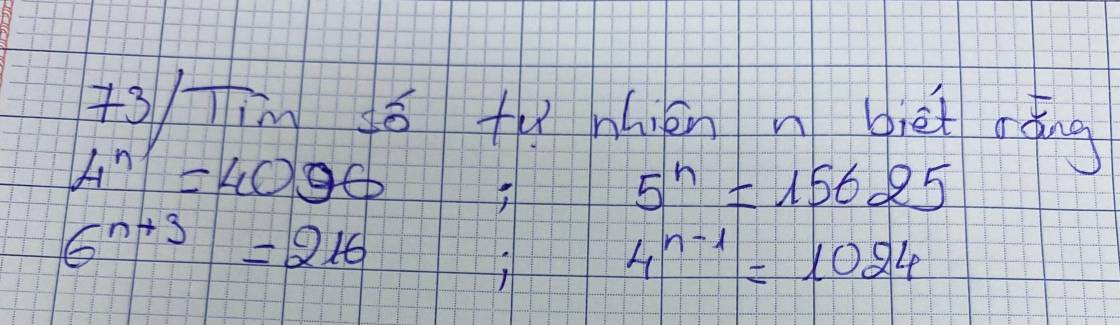 73/ Tìm số tự nhiên n biết rằng
4ⁿ = 4096 ; 5ⁿ = 15625
6ⁿ⁺³ = 216 ; 4ⁿ⁻¹ = 1024